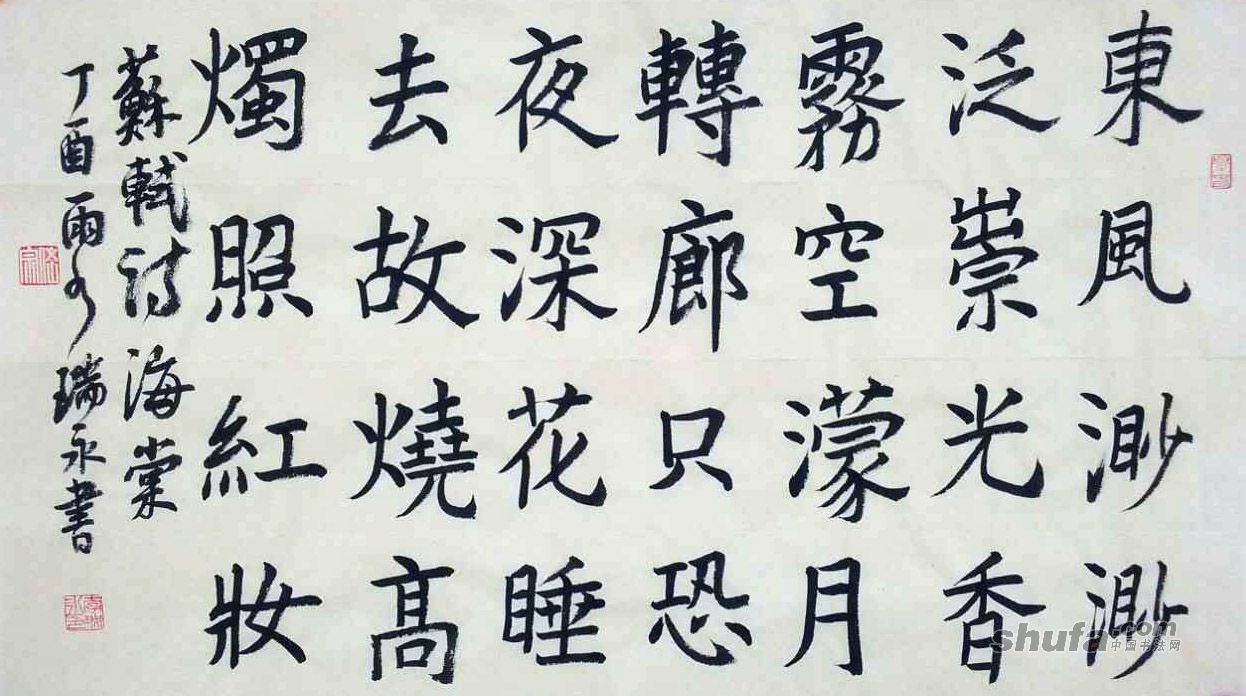 東風渺渺
泛崇光香
霧空濛月
轉廊只恐
夜深花睡
去故燒高
燭照紅妝
蘇軾詩海棠
丁酉雨水瑞永書
shufa.com
中国书法网